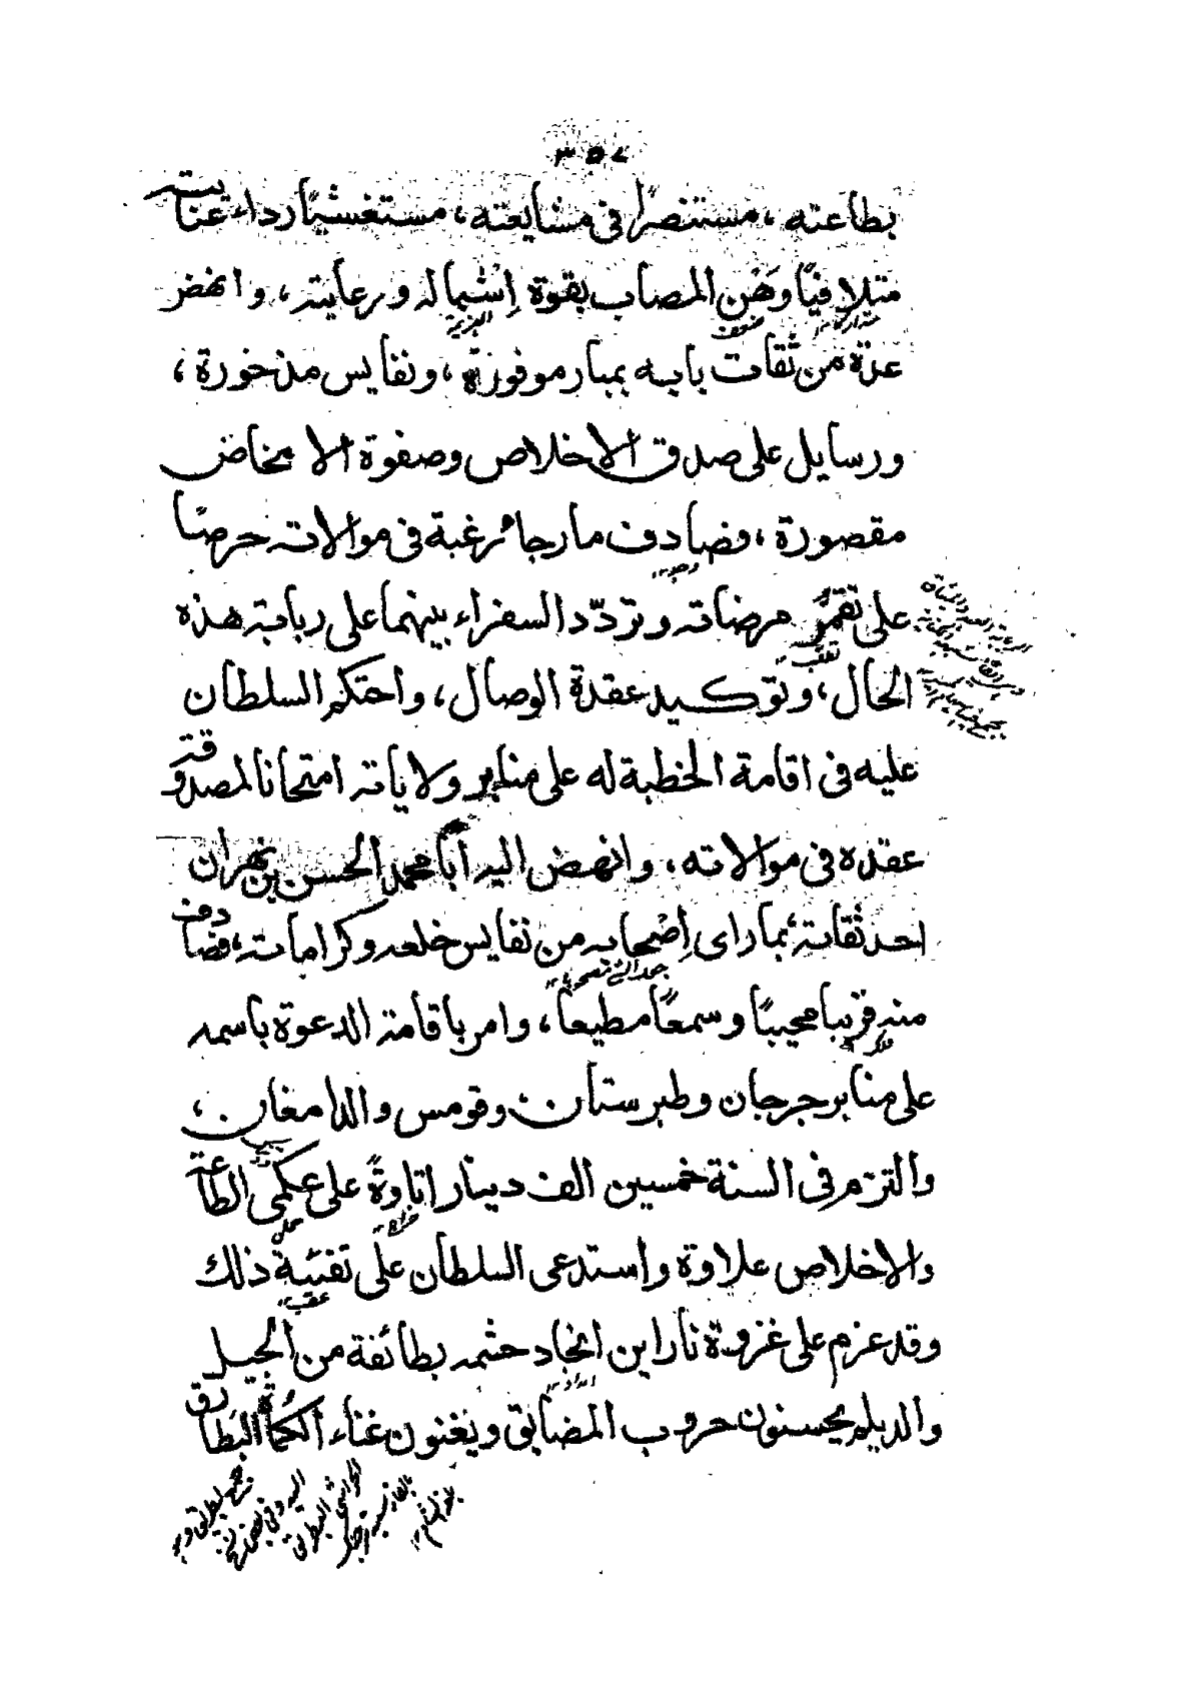 ٣٥٧
بطاعته، مستنصرًا في مشايعته، مستغشيًا رداء عنايته
متلافيًا وَهْن المصاب بقوة إِشباله ورعايته، وانهض
عدّة من ثقات بابه بمبار موفورة، ونفايس مذخورة،
ورسايل على صدق الاخلاص وصفوة الامخاض
مقصورة، فصادف مارجا ثر رغبة في موالاته حرصًا
على تقمُّن مرضاته وتردّد السفراء بينهما على ربابة هذه
الحال، وتوكيد عقدة الوصال، واحتكم السلطان
عليه في اقامة الخطبة له على منابر ولاياته امتحانا لمصدوقة
عقده في موالاته، وانهض اليه أبا محمد الحسن بن مهران
احد ثقاته، بما راى إِصحابه من نفايس خلعه وكراماته، فصادف
منه قريبا مجيبًا وسمعًا مطيعاً، وامر باقامة الدعوة باسمه
على منابر جرجان وطبرستان، وقومس والدامغان،
والتزم في السنة خمسين الف دينار اتاوةً على عكمي الطاعة
والاخلاص علاوة واستدعى السلطان على تفيئة ذلك
وقد عزم على غزوة ناراين انجاد حشمه بطائفة من الجيل
والديلم يحسنون حروب المضايق ويغنون غناء الكُماة البطارق